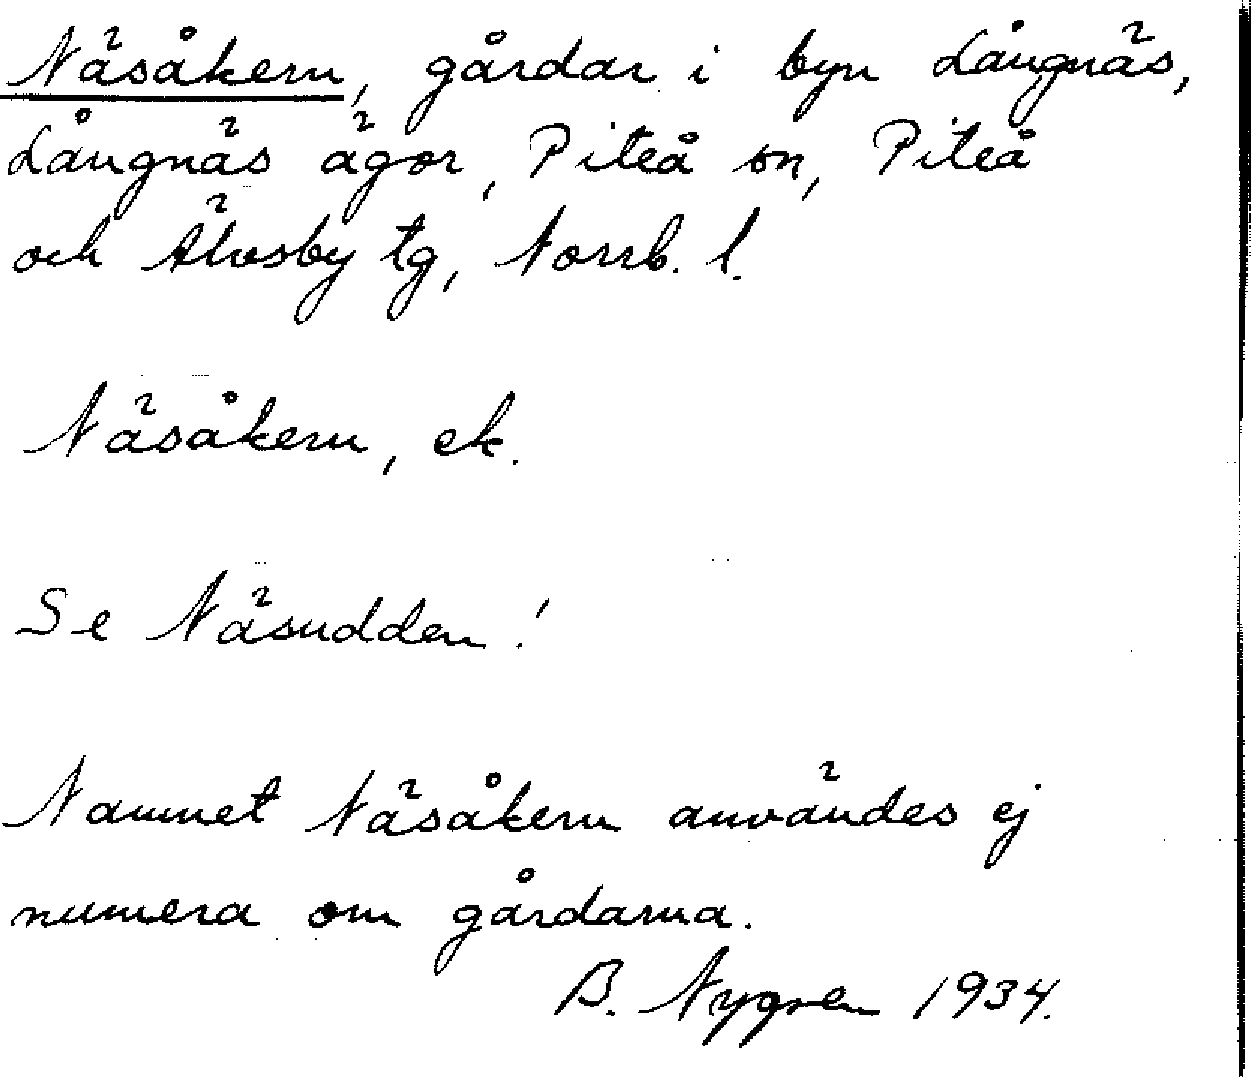 Näsåkern, gårdar i byn Långnäs,
Långnäs ägor, Piteå sn, Piteå
och Älvsby tg, Norrb. l.
Näsåkern, ek.
Se Näsudden!
Namnet Näsåkern användes ej
numera om gårdarna.
B. Nygren 1934.